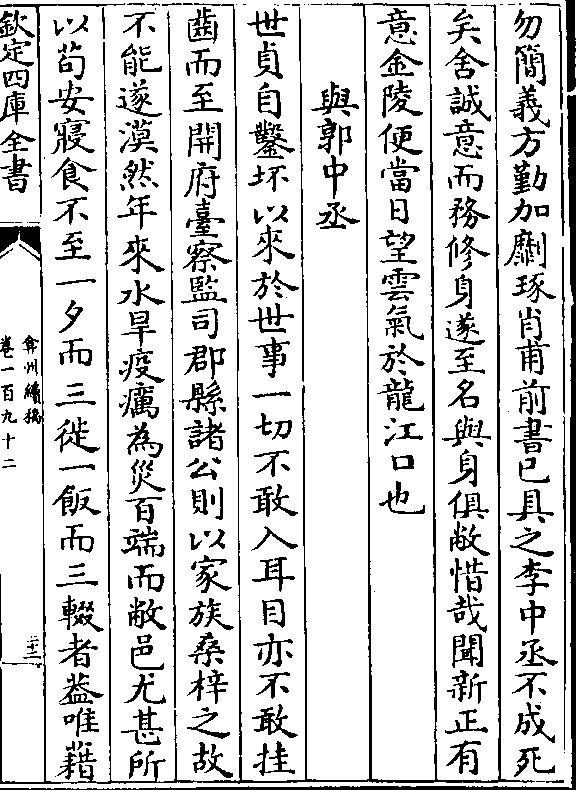 勿簡義方勤加劘琢肖甫前書已具之李中丞不成死
矣舍誠意而務修身遂至名與身俱敝惜哉聞新正有
意金陵便當日望雲氣於龍江口也
與郭中丞
世貞自鑿坏以來於世事一切不敢入耳目亦不敢挂
齒而至開府臺察監司郡縣諸公則以家族桑梓之故
不能遂漠然年來水旱疫癘為災百端而敝邑尤甚所
以茍安寢食不至一夕而三徙一飯而三輟者葢唯藉
欽定四庫全書
弇州續稿
卷一百九十二
二十二